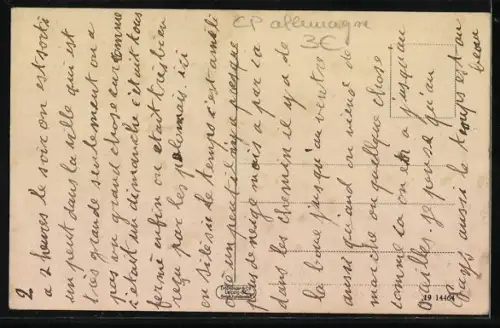 CP allemagne
3€
2
a 2 heures le soir on est sorti
un peut dans la ville qui est
très grande seulement on a
pas vu grand chose car comme
c'etait un dimanche c'était tous
fermé enfin on était très bien
reçu par les polonais. ici
en Silesie le temps c'est améli
oré un peut il n'y a presque
plus de neige mais a par ca
dans les chemin il y a de
la boue jusqu'au ventre
aussi quand on vient de
marche ou quelque chose
comme ca on en a jusqu'au
oreilles. je pense qu'au
Pays aussi le temps est au
beau
19 14464